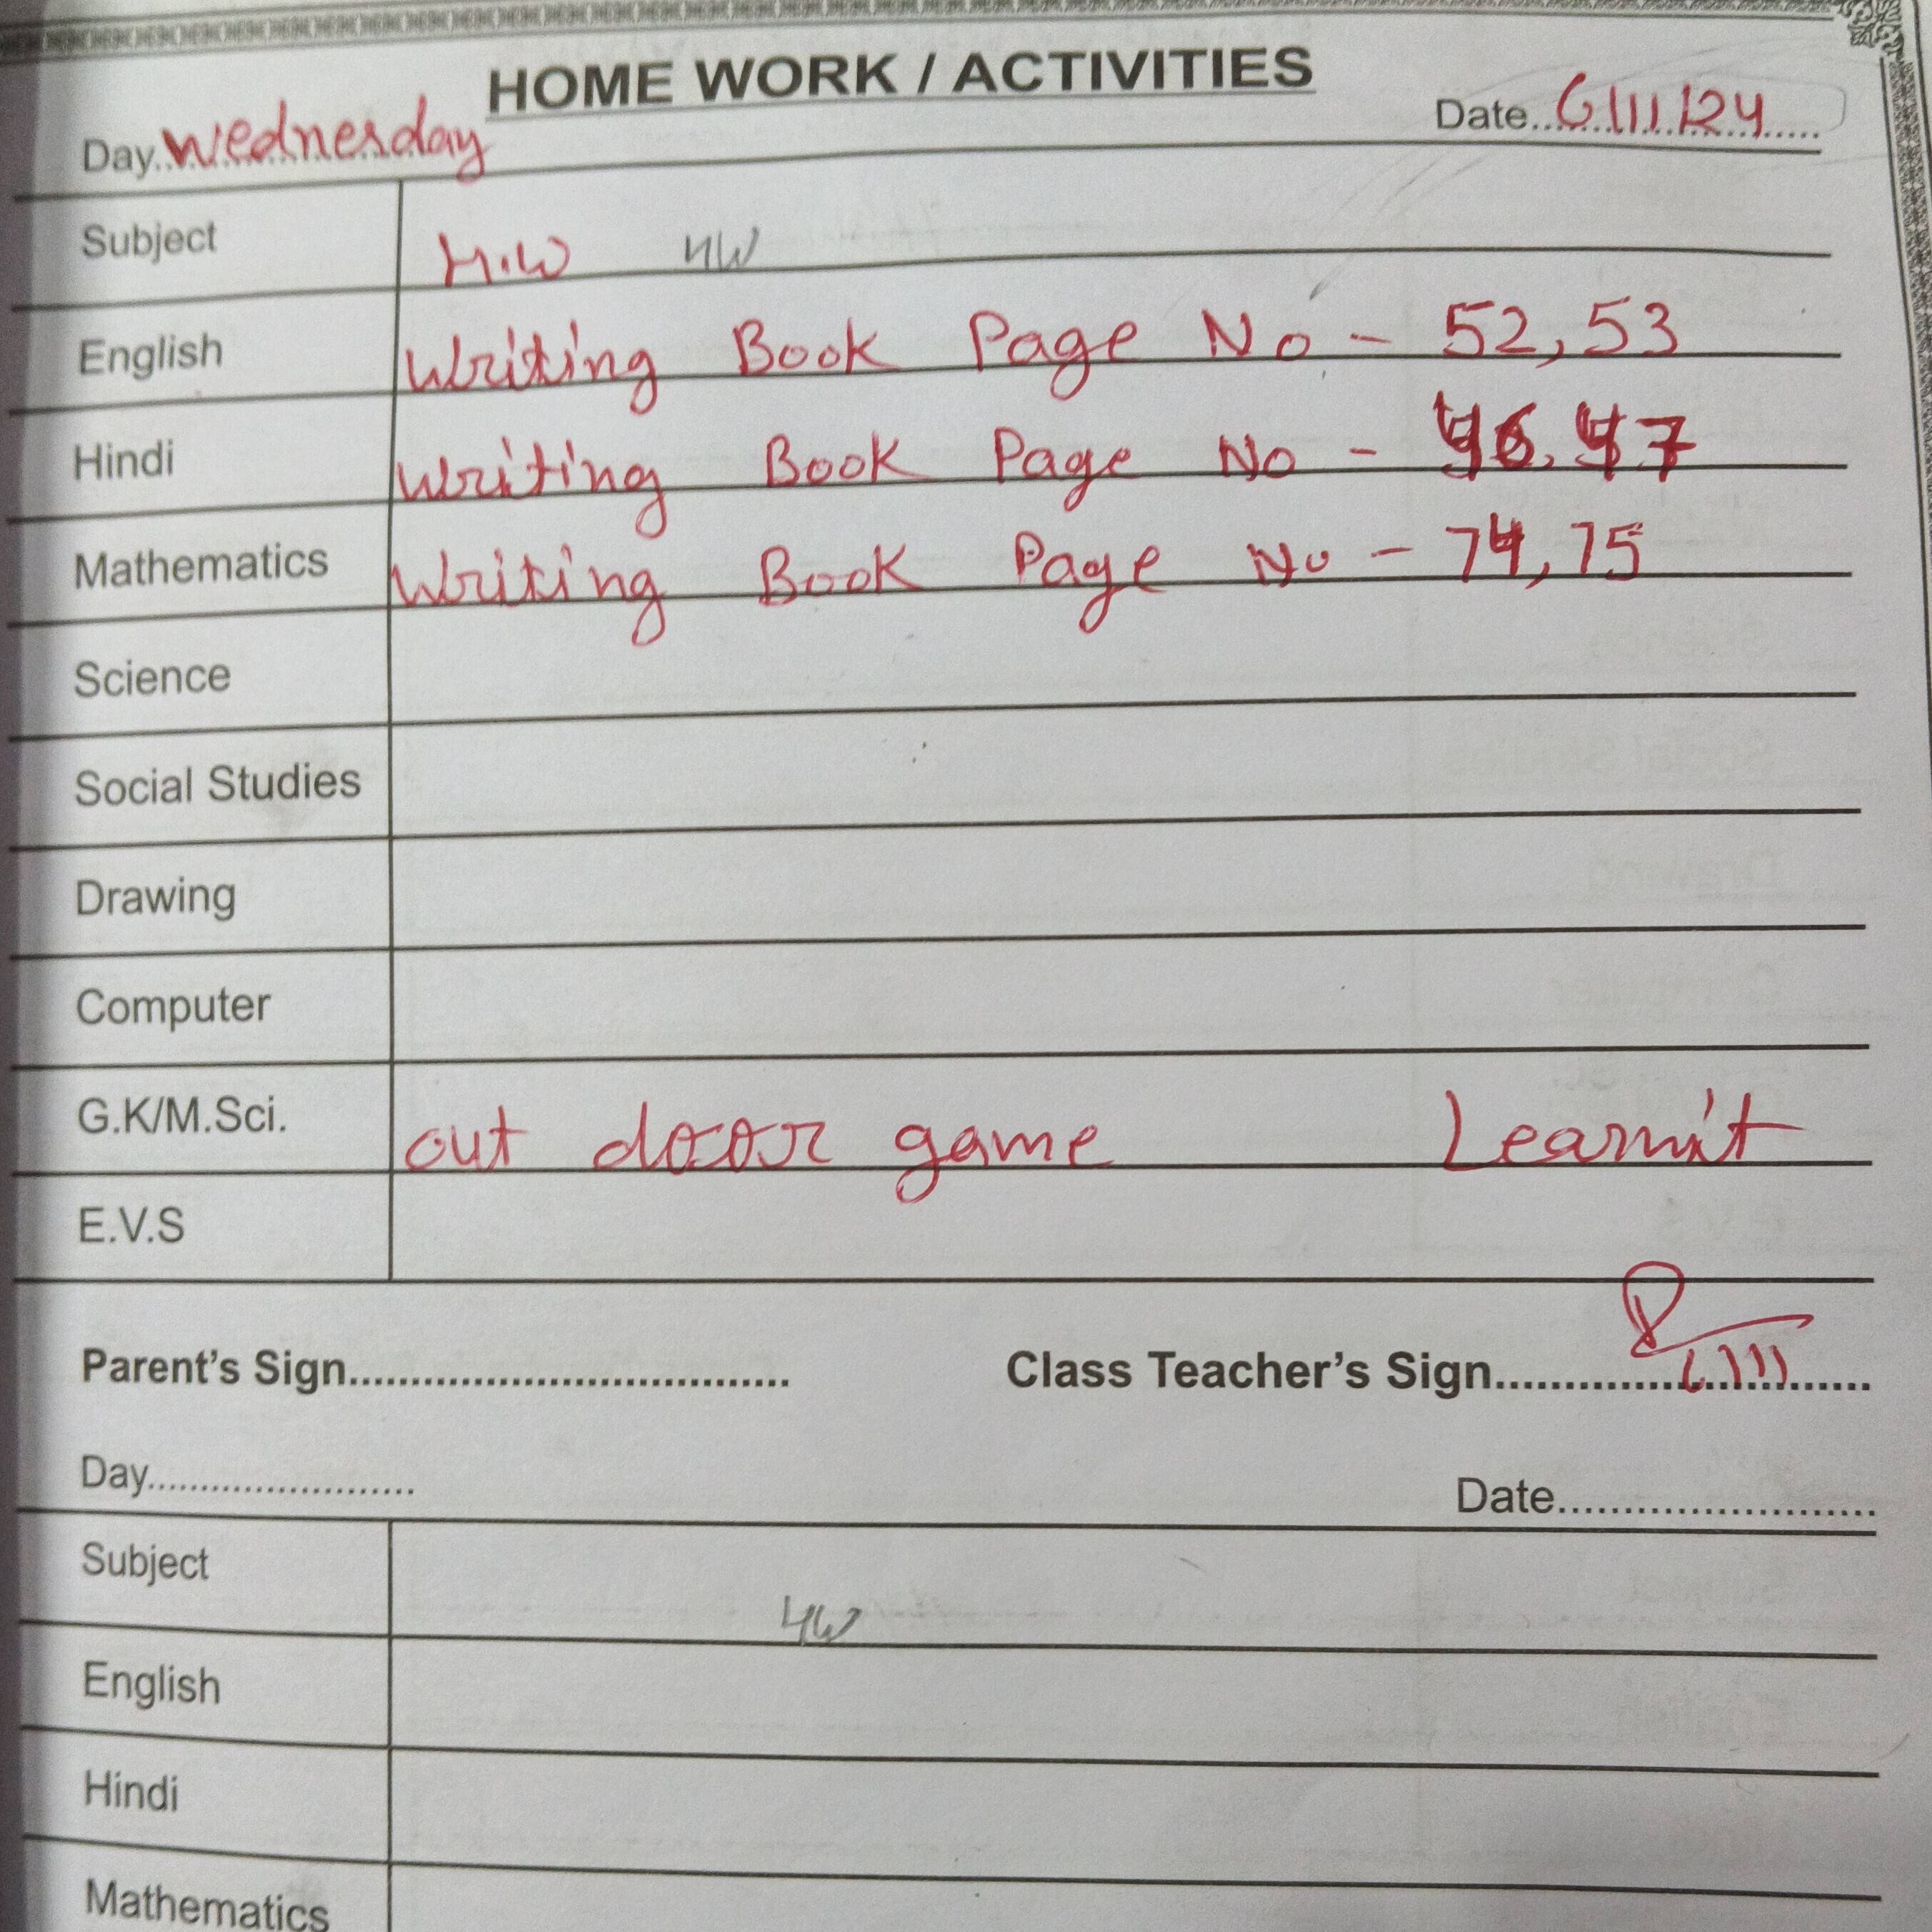 HOME WORK / ACTIVITIES
Day..Wednesday Date..6/11/24
Subject H.W HW
English Writing Book Page No - 52, 53
Hindi Writing Book Page No -
Mathematics Writing Book Page No - 74, 75
Science
Social Studies
Drawing
Computer
G.K/M.Sci. out dooor game Learnit
E.V.S
Parent's Sign.................................... Class Teacher's Sign.............................. 6/11
Day........................ Date........................
Subject HW
English
Hindi
Mathematics